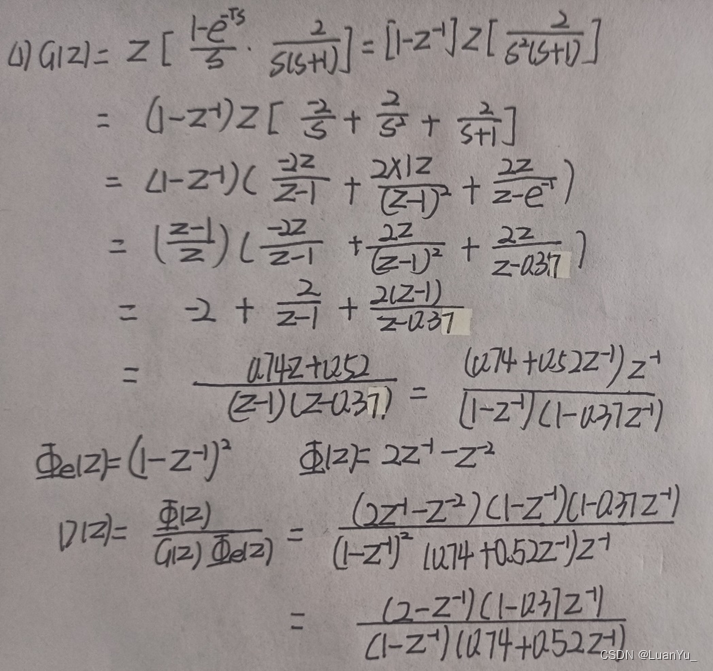 (1) G(z) = Z [ \frac{1-e^{-TS}}{S} · \frac{2}{S(S+1)} ] = [1-z^{-1}] Z [ \frac{2}{S^2(S+1)} ]
= (1-z^{-1}) Z [ \frac{-2}{S} + \frac{2}{S^2} + \frac{2}{S+1} ]
= (1-z^{-1}) ( \frac{-2z}{z-1} + \frac{2×1z}{(z-1)^2} + \frac{2z}{z-e^{-T}} )
= ( \frac{z-1}{z} ) ( \frac{-2z}{z-1} + \frac{2z}{(z-1)^2} + \frac{2z}{z-0.37} )
= -2 + \frac{2}{z-1} + \frac{2(z-1)}{z-0.37}
= \frac{0.74z+0.52}{(z-1)(z-0.37)} = \frac{(0.74+0.52z^{-1})z^{-1}}{(1-z^{-1})(1-0.37z^{-1})}
Φe(z)=(1-z^{-1})^2 Φ(z)= 2z^{-1}-z^{-2}
D(z)= \frac{Φ(z)}{G(z)Φe(z)} = \frac{(2z^{-1}-z^{-2})(1-z^{-1})(1-0.37z^{-1})}{(1-z^{-1})^2(0.74+0.52z^{-1})z^{-1}}
= \frac{(2-z^{-1})(1-0.37z^{-1})}{(1-z^{-1})(0.74+0.52z^{-1})}
CSDN @LuanYu_